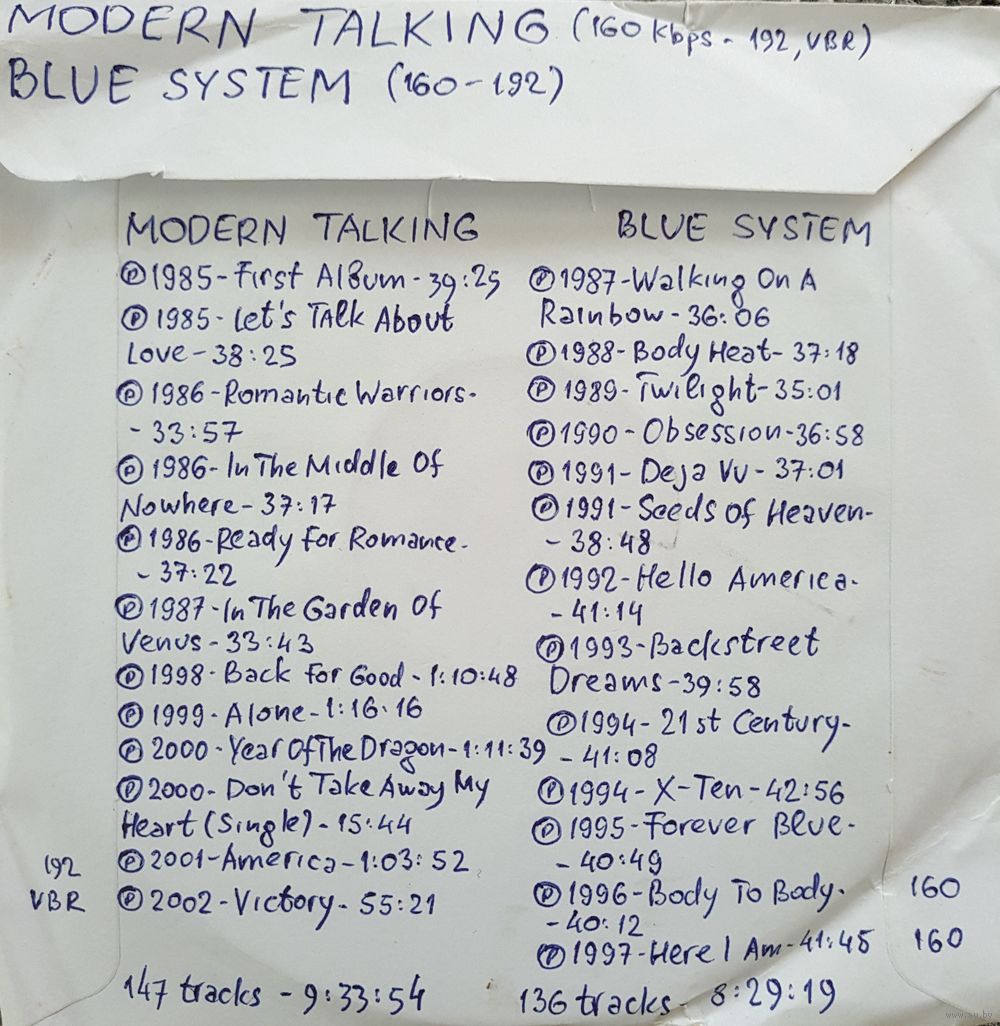 MODERN TALKING (160 kbps - 192, VBR)
BLUE SYSTEM (160-192)
MODERN TALKING
Ⓟ 1985-First Album-39:25
Ⓟ 1985-Let's Talk About
Love-38:25
Ⓟ 1986-Romantic Warriors-
-33:57
Ⓟ 1986-In The Middle Of
Nowhere-37:17
Ⓟ 1986-Ready For Romance-
-37:22
Ⓟ 1987-In The Garden Of
Venus-33:43
Ⓟ 1998-Back For Good-1:10:48
Ⓟ 1999-Alone-1:16:16
Ⓟ 2000-Year Of The Dragon-1:11:39
Ⓟ 2000-Don't Take Away My
Heart (Single)-15:44
192
Ⓟ 2001-America-1:03:52
VBR
Ⓟ 2002-Victory-55:21
147 tracks - 9:33:54
BLUE SYSTEM
Ⓟ 1987-Walking On A
Rainbow-36:06
Ⓟ 1988-Body Heat-37:18
Ⓟ 1989-Twilight-35:01
Ⓟ 1990-Obsession-36:58
Ⓟ 1991-Deja Vu-37:01
Ⓟ 1991-Seeds of Heaven-
-38:48
Ⓟ 1992-Hello America-
-41:14
Ⓟ 1993-Backstreet
Dreams-39:58
Ⓟ 1994-21st Century-
-41:08
Ⓟ 1994-X-Ten-42:56
Ⓟ 1995-Forever Blue-
-40:49
Ⓟ 1996-Body To Body-
160
-40:12
Ⓟ 1997-Here I Am-41:45
160
136 tracks- 8:29:19
www.au.by